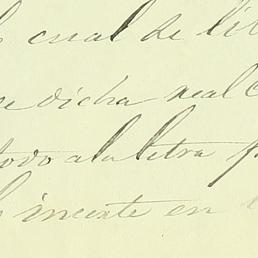 cual de
dicha real
todo a la letra
inserte en